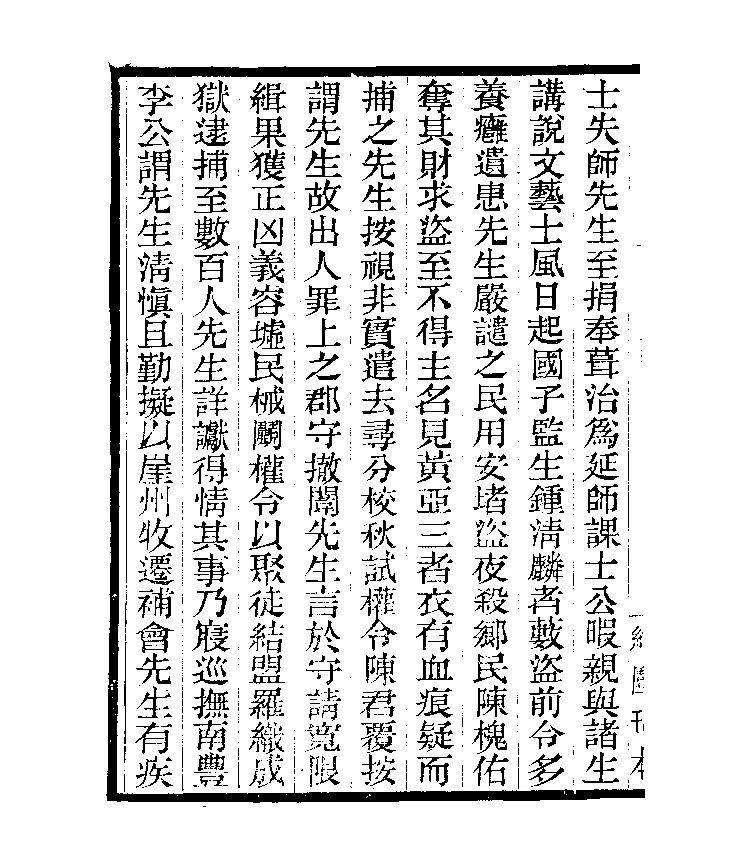 士失師先生至捐奉葺治爲延師課士公暇親與諸生
講說文藝士風日起國子監生鍾淸麟者藪盜前令多
養癰遺患先生嚴譴之民用安堵盜夜殺鄉民陳槐佑
奪其財求盜至不得主名見黃亞三者衣有血痕疑而
捕之先生按視非實遣去尋分校秋試權令陳君覆按
謂先生故出人罪上之郡守撤闈先生言於守請寬限
緝果獲正凶義容墟民械鬭權令以聚徒結盟羅織成
獄逮捕至數百人先生詳讞得情其事乃寢巡撫南豐
李公謂先生淸愼且勤擬以崖州牧遷補會先生有疾
園刊本